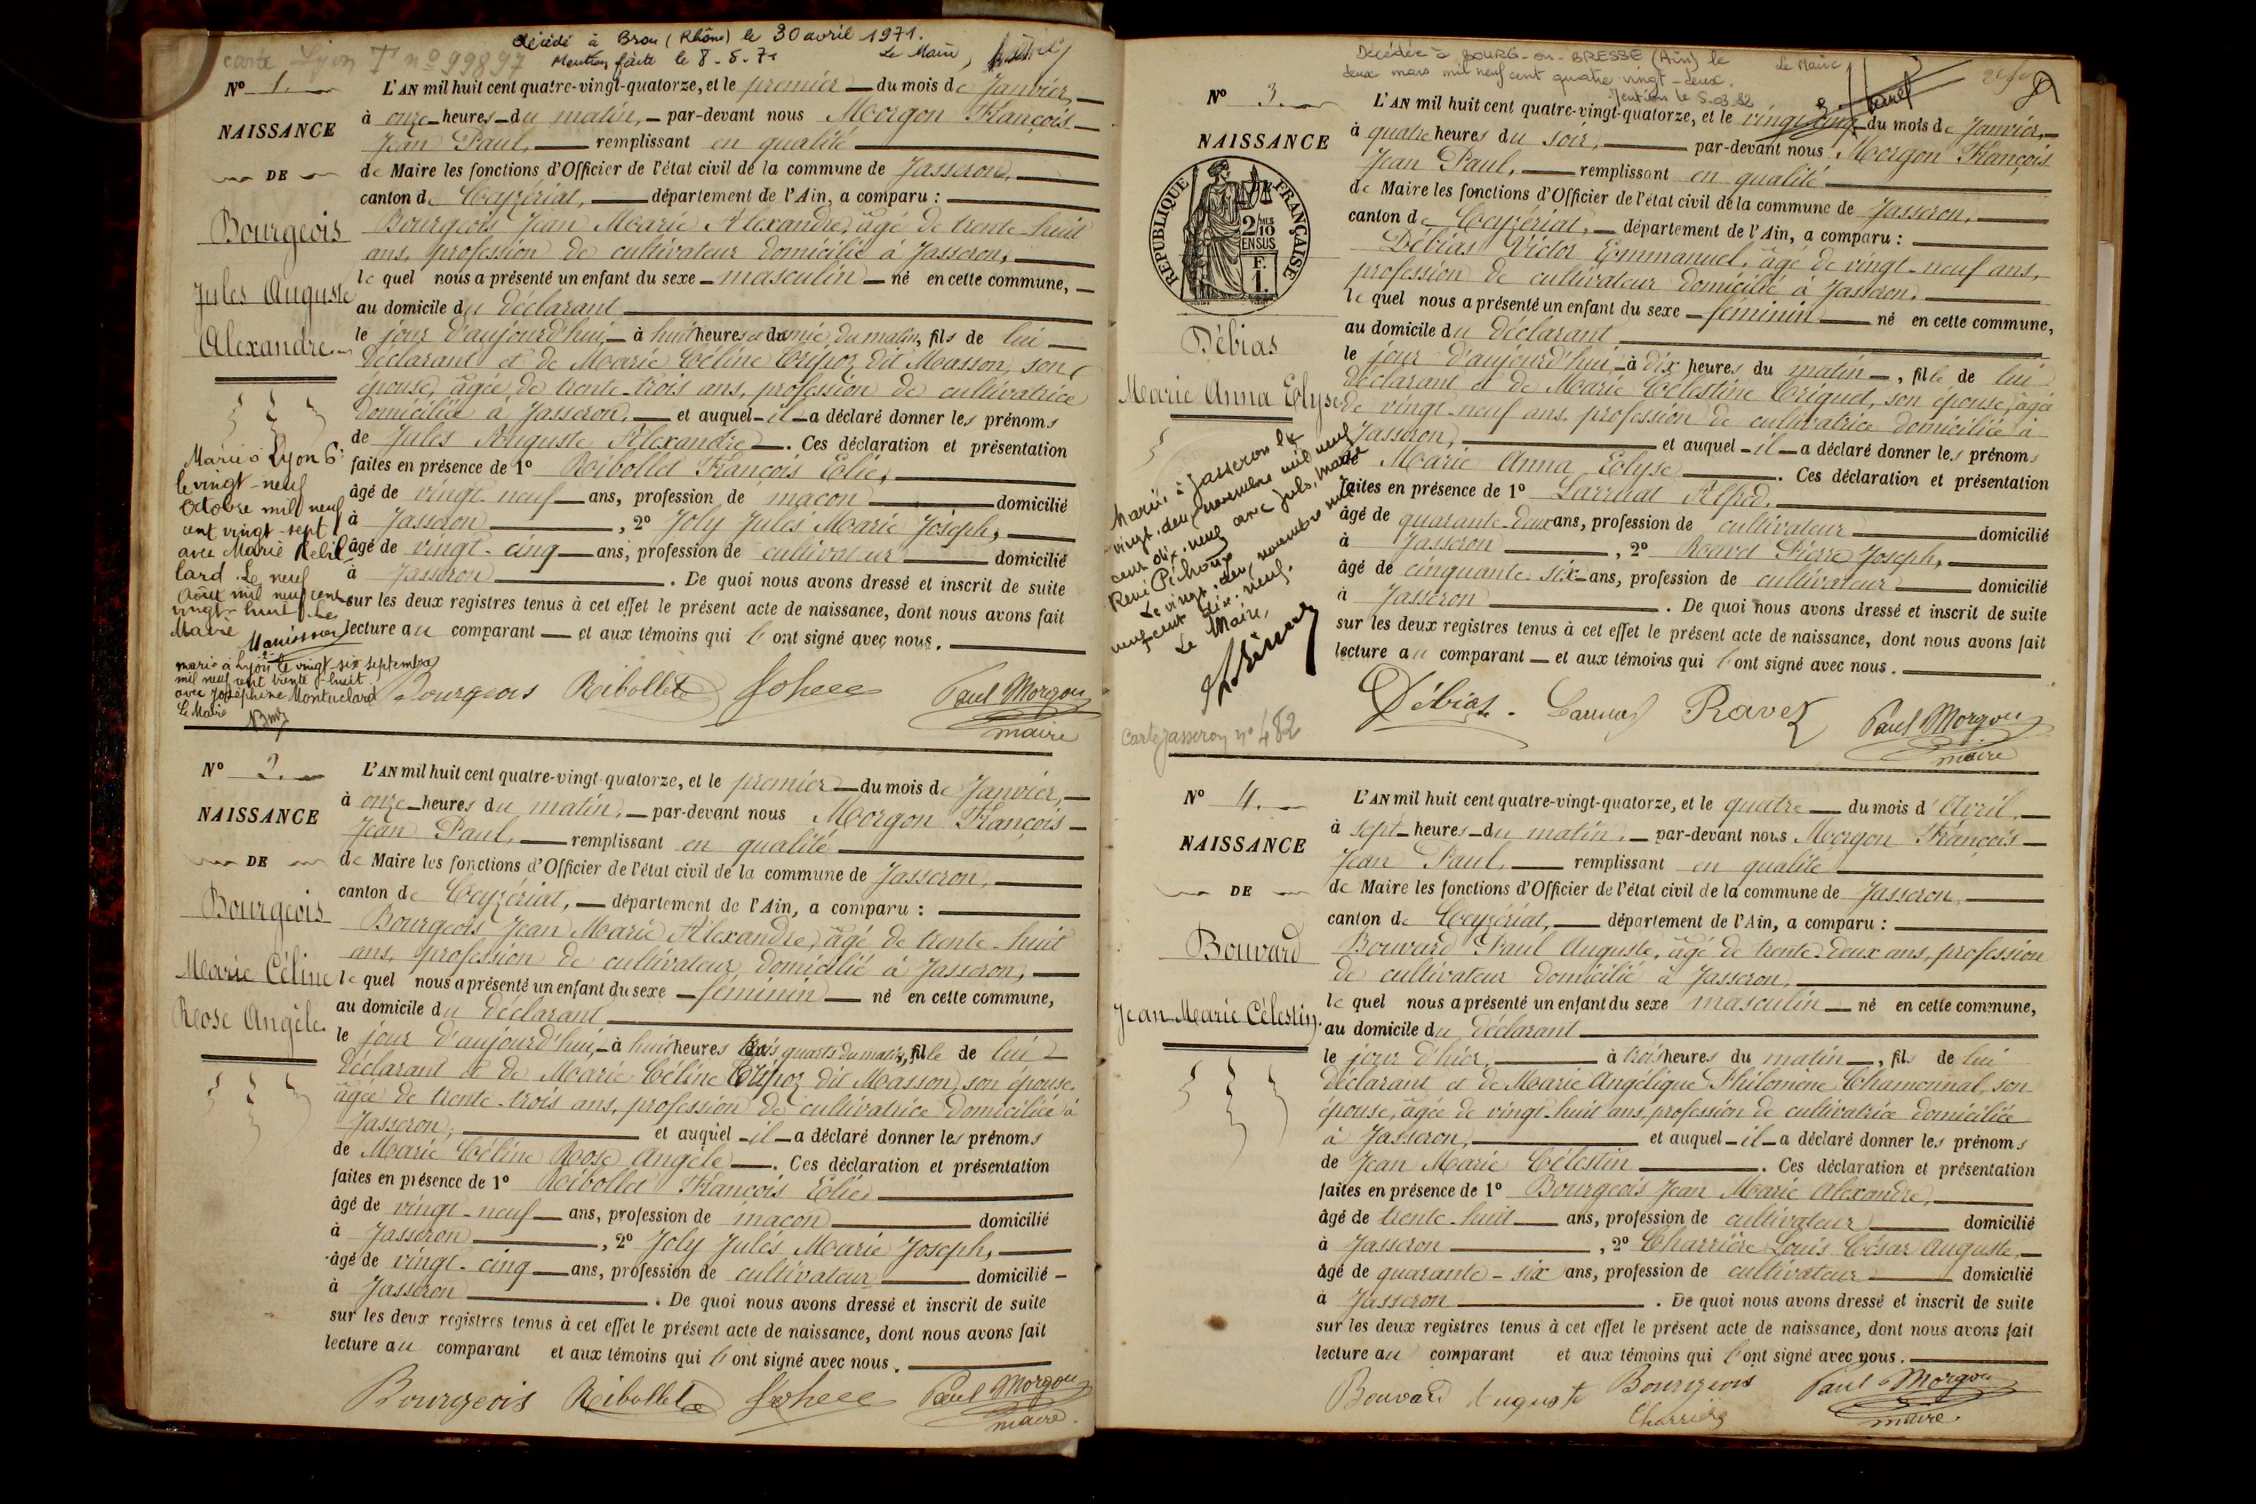 décédé à Bron (Rhône) le 30 avril 1971.
Mention faite le 8-5-71 Le Maire,
carte Lyon T nº 99897
Nº 1.
NAISSANCE
DE
Bourgeois
Jules Auguste
Alexandre
L'AN mil huit cent quatre-vingt-quatorze, et le premier du mois de Janvier,
à onze heures du matin, par-devant nous Morgon François
Jean Paul, remplissant en qualité
de Maire les fonctions d'Officier de l'état civil de la commune de Jasseron,
canton de Ceyzériat, département de l'Ain, a comparu :
Bourgeois Jean Marie Alexandre, âgé de trente-huit
ans, profession de cultivateur domicilié à Jasseron,
le quel nous a présenté un enfant du sexe masculin né en cette commune,
au domicile du déclarant
le jour d'aujourd'hui, à huit heures et demie du matin, fils de lui
déclarant et de Marie Céline Crépoz dit Masson, son
épouse, âgée de trente-trois ans, profession de cultivatrice
domiciliée à Jasseron, et auquel il a déclaré donner les prénoms
de Jules Auguste Alexandre. Ces déclaration et présentation
faites en présence de 1º Ribollet François Elie,
âgé de vingt-neuf ans, profession de maçon domicilié
à Jasseron, 2º Joly Jules Marie Joseph,
âgé de vingt-cinq ans, profession de cultivateur domicilié
à Jasseron. De quoi nous avons dressé et inscrit de suite
sur les deux registres tenus à cet effet le présent acte de naissance, dont nous avons fait
lecture au comparant et aux témoins qui l'ont signé avec nous.
Marié à Lyon 6e
le vingt-neuf
Octobre mil neuf
cent vingt-sept
avec Marie Rebil
lard. Le neuf
Août mil neuf cent
vingt-huit. Le
Maire
marié à Lyon le vingt-six septembre
mil neuf cent trente-huit
avec Joséphine Montuclard
Le Maire
Bourgeois Ribollet Paul Morgon
maire
Nº 2.
NAISSANCE
DE
Bourgeois
Marie Céline
Rose Angèle.
L'AN mil huit cent quatre-vingt-quatorze, et le premier du mois de Janvier,
à onze heures du matin, par-devant nous Morgon François
Jean Paul, remplissant en qualité
de Maire les fonctions d'Officier de l'état civil de la commune de Jasseron,
canton de Ceyzériat, département de l'Ain, a comparu :
Bourgeois Jean Marie Alexandre, âgé de trente-huit
ans, profession de cultivateur domicilié à Jasseron,
le quel nous a présenté un enfant du sexe féminin né en cette commune,
au domicile du déclarant
le jour d'aujourd'hui, à huit heures trois quarts du matin, fille de lui
déclarant et de Marie Céline Crépoz dit Masson, son épouse,
âgée de trente-trois ans, profession de cultivatrice domiciliée à
Jasseron, et auquel il a déclaré donner les prénoms
de Marie Céline Rose Angèle. Ces déclaration et présentation
faites en présence de 1º Ribollet François Elie
âgé de vingt-neuf ans, profession de maçon domicilié
à Jasseron, 2º Joly Jules Marie Joseph,
âgé de vingt-cinq ans, profession de cultivateur domicilié
à Jasseron. De quoi nous avons dressé et inscrit de suite
sur les deux registres tenus à cet effet le présent acte de naissance, dont nous avons fait
lecture au comparant et aux témoins qui l'ont signé avec nous.
Bourgeois Ribollet Paul Morgon
maire.
Décédée à BOURG-en-BRESSE (Ain) le
deux mars mil neuf cent quatre vingt-deux.
Mention le 5.03.82
Le Maire
Nº 3.
NAISSANCE
RÉPUBLIQUE FRANÇAISE
2/10
EN SUS
F.
1.
Débias
Marie Anna Elyse
L'AN mil huit cent quatre-vingt-quatorze, et le vingt cinq du mois de Janvier,
à quatre heures du soir, par-devant nous Morgon François
Jean Paul, remplissant en qualité
de Maire les fonctions d'Officier de l'état civil de la commune de Jasseron,
canton de Ceyzériat, département de l'Ain, a comparu :
Débias Victor Emmanuel, âgé de vingt-neuf ans,
profession de cultivateur domicilié à Jasseron,
le quel nous a présenté un enfant du sexe féminin né en cette commune,
au domicile du déclarant
le jour d'aujourd'hui à dix heures du matin, fille de lui
déclarant et de Marie Célestine Criquet, son épouse, âgée
de vingt-neuf ans, profession de cultivatrice domiciliée à
Jasseron, et auquel il a déclaré donner les prénoms
de Marie Anna Elyse. Ces déclaration et présentation
faites en présence de 1º Alfred,
âgé de quarante-deux ans, profession de cultivateur domicilié
à Jasseron, 2º Ravet Pierre Joseph,
âgé de cinquante-six ans, profession de cultivateur domicilié
à Jasseron. De quoi nous avons dressé et inscrit de suite
sur les deux registres tenus à cet effet le présent acte de naissance, dont nous avons fait
lecture au comparant et aux témoins qui l'ont signé avec nous.
Mariée à Jasseron le
vingt-deux novembre mil neuf
cent dix-neuf avec Jules Marie
René Péchoux
Le vingt-deux novembre mil
neuf cent dix-neuf.
Le Maire,
Débias. Ravet Paul Morgon
maire
Carte Jasseron nº 482
Nº 4.
NAISSANCE
DE
Bouvard
Jean Marie Célestin.
L'AN mil huit cent quatre-vingt-quatorze, et le quatre du mois d'Avril,
à sept heures du matin, par-devant nous Morgon François
Jean Paul, remplissant en qualité
de Maire les fonctions d'Officier de l'état civil de la commune de Jasseron,
canton de Ceyzériat, département de l'Ain, a comparu :
Bouvard Paul Auguste, âgé de trente-deux ans, profession
de cultivateur domicilié à Jasseron,
le quel nous a présenté un enfant du sexe masculin né en cette commune,
au domicile du déclarant
le jour d'hier, à trois heures du matin, fils de lui
déclarant et de Marie Angélique Philomène Chamonnal, son
épouse, âgée de vingt-huit ans, profession de cultivatrice domiciliée
à Jasseron, et auquel il a déclaré donner les prénoms
de Jean Marie Célestin. Ces déclaration et présentation
faites en présence de 1º Bourgeois Jean Marie Alexandre,
âgé de trente-huit ans, profession de cultivateur domicilié
à Jasseron, 2º Charrière Louis César Auguste,
âgé de quarante-six ans, profession de cultivateur domicilié
à Jasseron. De quoi nous avons dressé et inscrit de suite
sur les deux registres tenus à cet effet le présent acte de naissance, dont nous avons fait
lecture au comparant et aux témoins qui l'ont signé avec nous.
Bouvard Auguste Bourgeois Paul Morgon
Charrière maire.